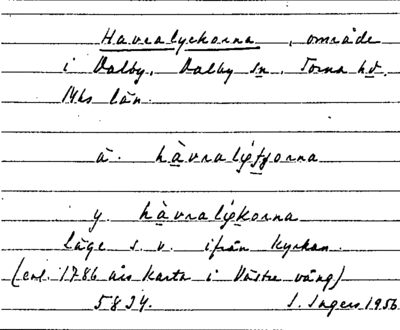 Havralyckorna, område
i Dalby, Dalby sn, Torna hd,
Mhs län.
ä. hàvralýťyorna
y. hàvralýkorna
Läge s. v. ifrån kyrkan.
(enl. 1786 års karta i Västra vång)
5834. I. Ingers 1956